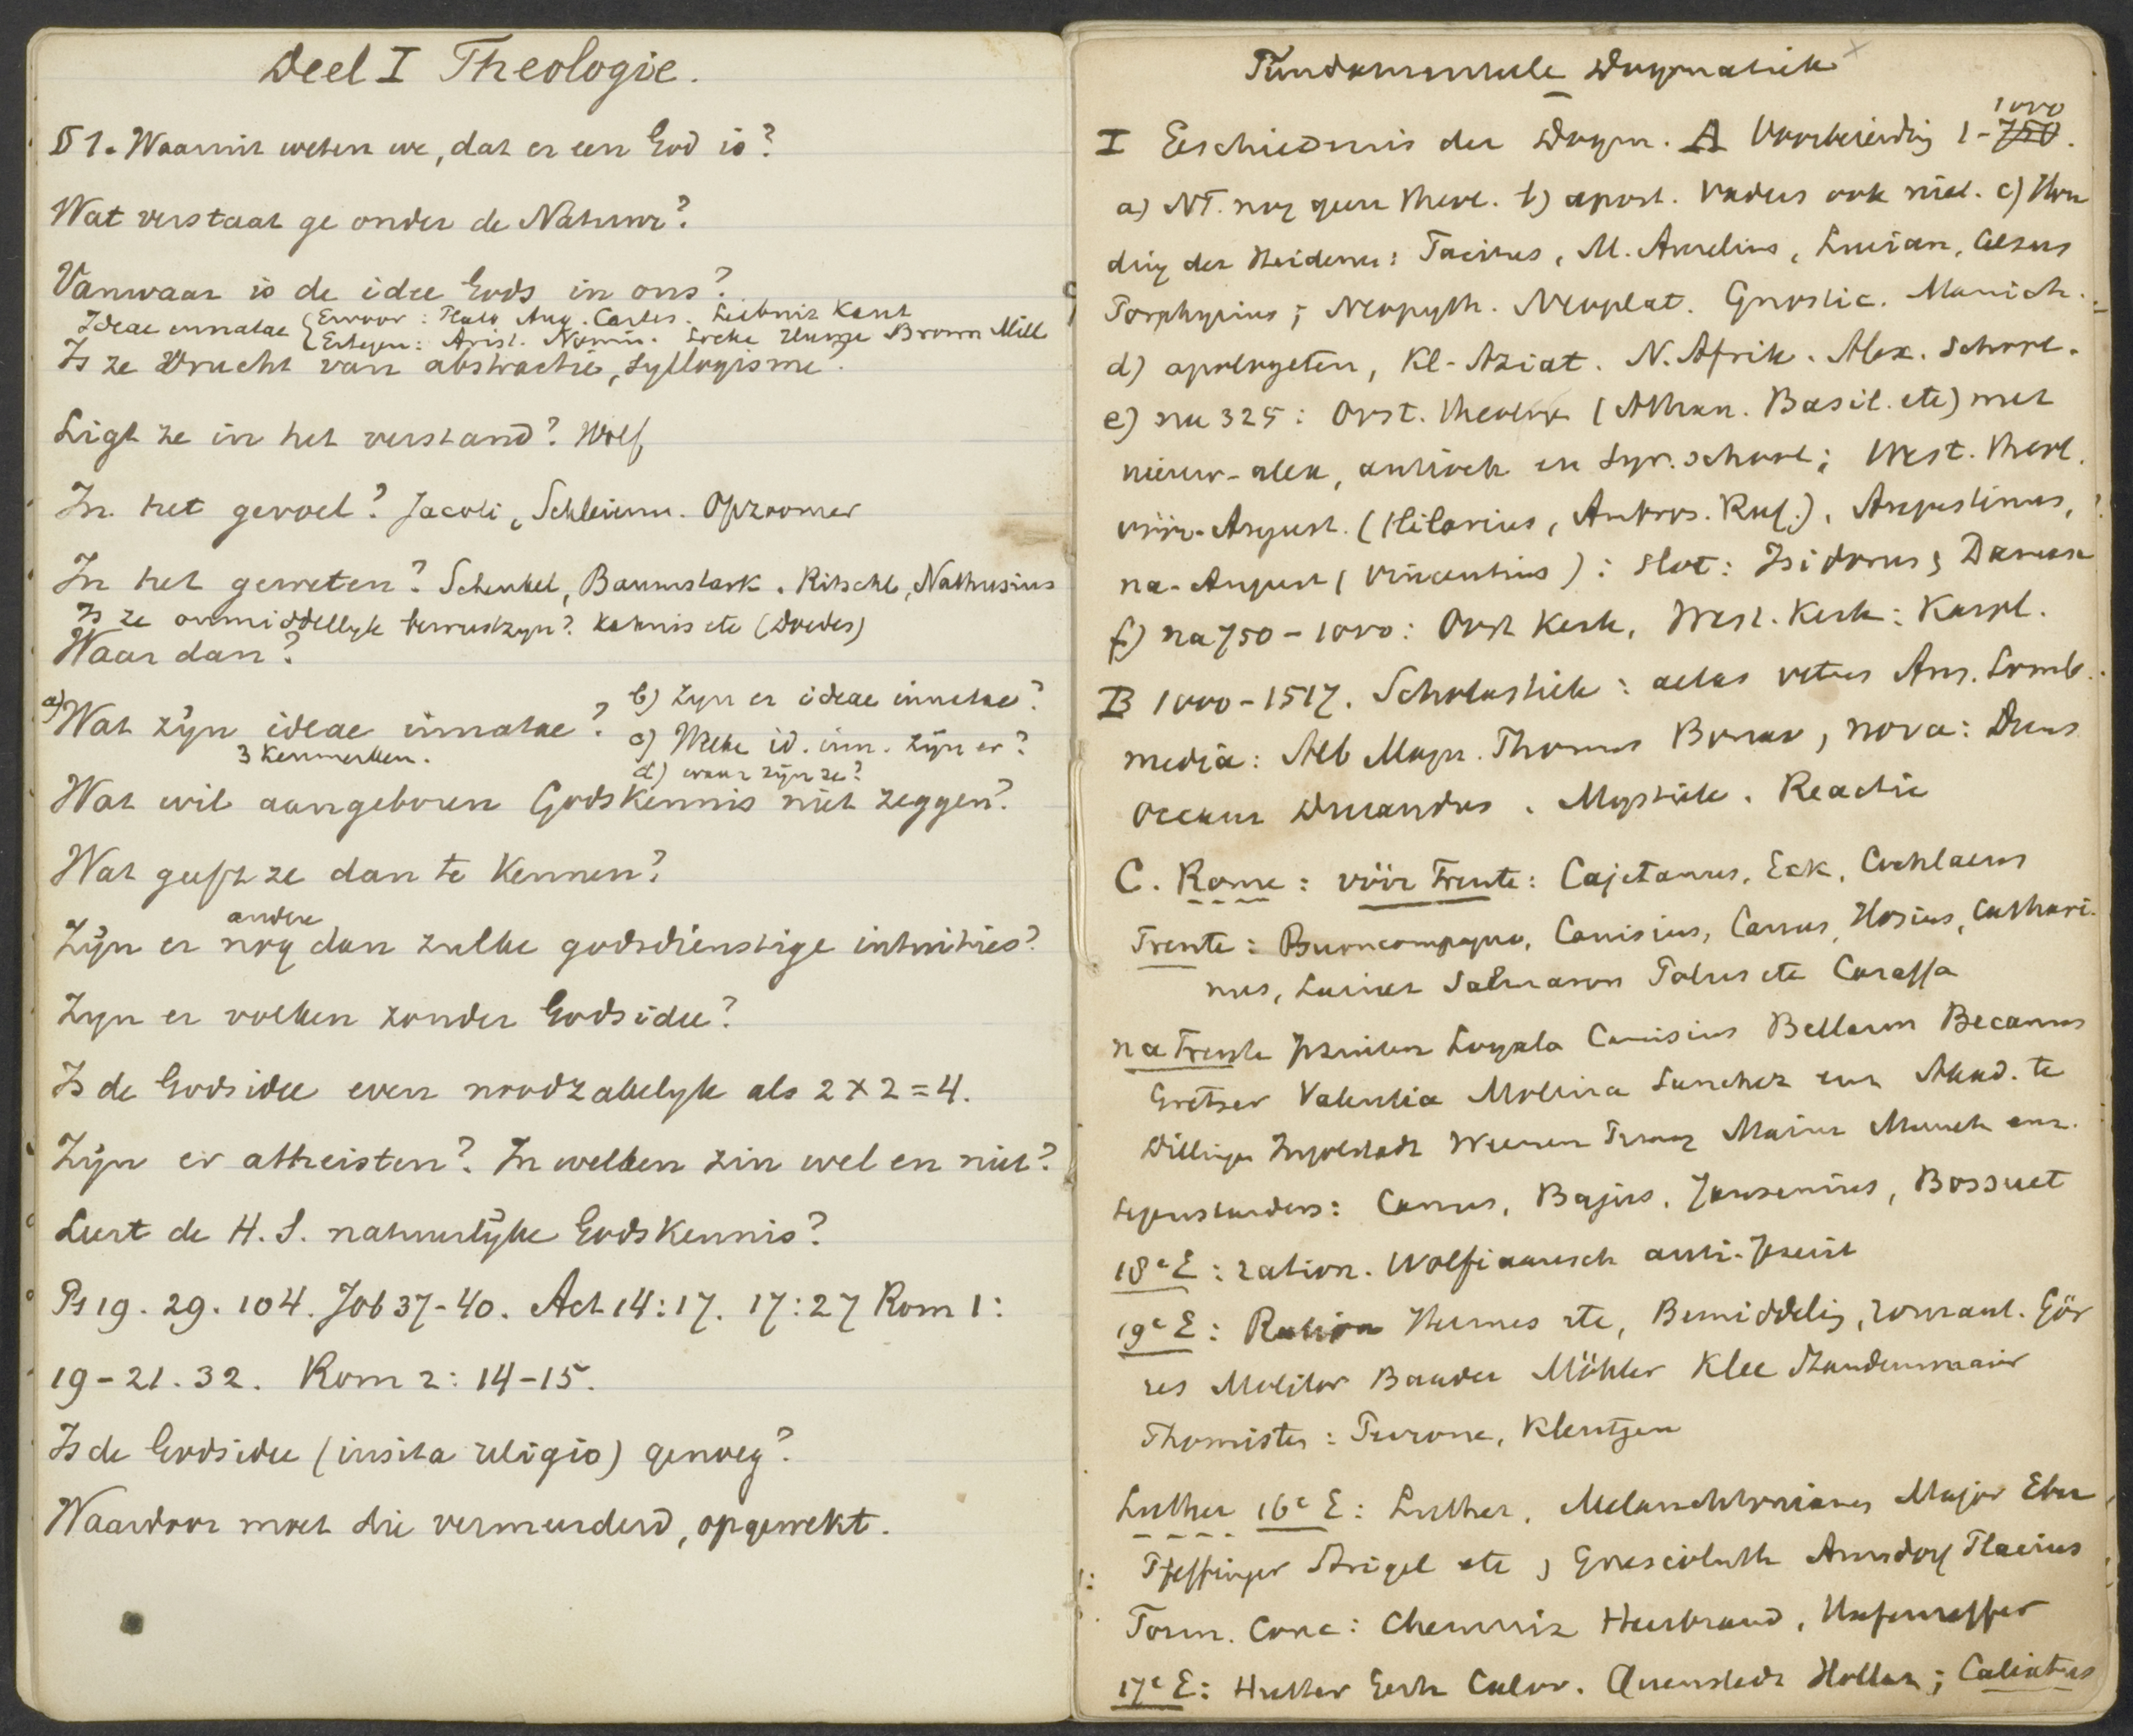 Deel I Theologie.
§ 1. Waaruit weten we, dat er een God is?
Wat verstaat ge onder de Natuur?
Vanwaar is de idee Gods in ons?
Ideae innatae { Ervoor: Plato Aug. Cartes. Leibniz Kant
Ertegen: Arist. Nomin. Locke Hume Brown Mill
Is ze vrucht van abstractie, syllogisme?
Ligt ze in het verstand? Wolf
In het gevoel? Jacobi, Schleierm. Opzoomer
In het geweten? Schenkel, Baumstark. Ritschl, Nathusius
Is ze onmiddellyk bewustzyn? Kahnis etc (Doedes)
Waar dan?
a) Wat zijn ideae innatae?
3 Kenmerken.
b) Zyn er ideae innatae?
c) Welke id. inn. zijn er?
d) waar zijn ze?
Wat wil aangeboren Godskennis niet zeggen?
Wat geeft ze dan te Kennen?
Zijn er nog andere dan zulke godsdienstige intuities?
Zyn er volken zonder Godsidee?
Is de Godsidee even noodzakelyk als 2 x 2 = 4.
Zijn er atheisten? In welken zin wel en niet?
Leert de H. S. natuurlijke Godskennis?
Ps 19. 29. 104. Job 37-40. Act 14:17. 17:27 Rom 1:
19-21. 32. Rom 2: 14-15.
Is de Godsidee (insita religio) genoeg?
Waardoor moet die vermeerderd, opgewekt.
Fundamenteele Dogmatiek
I Geschiedenis der Dogm. A Voorbereiding 1-750 1000.
a) NT. nog geen theol. b) apost. Vaders ook niet. c) Hou
ding der Heidenen: Tacitus, M. Aurelius, Lucian, Celsus
Porphyrius; Neopyth. Neoplat. Gnostic. Manich.
d) apologeten, Kl-Aziat. N. Afrik. Alex. School.
e) na 325: Oost. theologie (Athan. Basil. etc) met
nieuw-alex, antioch en Syr. school; West. theol.
vóór-August. (Hilarius, Ambros. Ruf.), Augustinus,
na-August (Vincentius): slot: Isidorus; Damasc
f) na 750-1000: Oost Kerk, West. Kerk: Karol.
B 1000-1517. Scholastiek: aetas vetus Ans. Lomb.
media: Alb Magn. Thomas Bonav, nova: Duns
Occam Durandus. Mystiek. Reactie
C. Rome: vóór Trente: Cajetanus, Eck, Cochlaeus
Trente: Buoncompagno, Canisius, Canus, Hosius, Cathari-
nus, Lainez Salmaron Polus etc Caraffa
na Trente Jezuiten Loyola Canisius Bellarm Becanus
Gretser Valentia Molina Sanchez enz Akad. te
Dillingen Ingolstadt Weenen Praag Mainz Munch enz.
tegenstanders: Canus, Bajus, Jansenius, Bossuet
18e E: ration. Wolfiaansch anti-Jezuit
19e E: Ration Hermes etc, Bemiddeling, romant. Gör
res Molitor Baader Möhler Klee Staudenmaier
Thomisten: Perrone, Kleutgen
Luther 16e E: Luther, Melanchthonianen Major Eber
Pfeffinger Strigel etc; Gnesioluth Amsdorf Flacius
Form. Conc: Chemniz Heerbrand, Hafenreffer
17e E: Hutter Gerh Calov. Quenstedt Hollaz; Calixtus